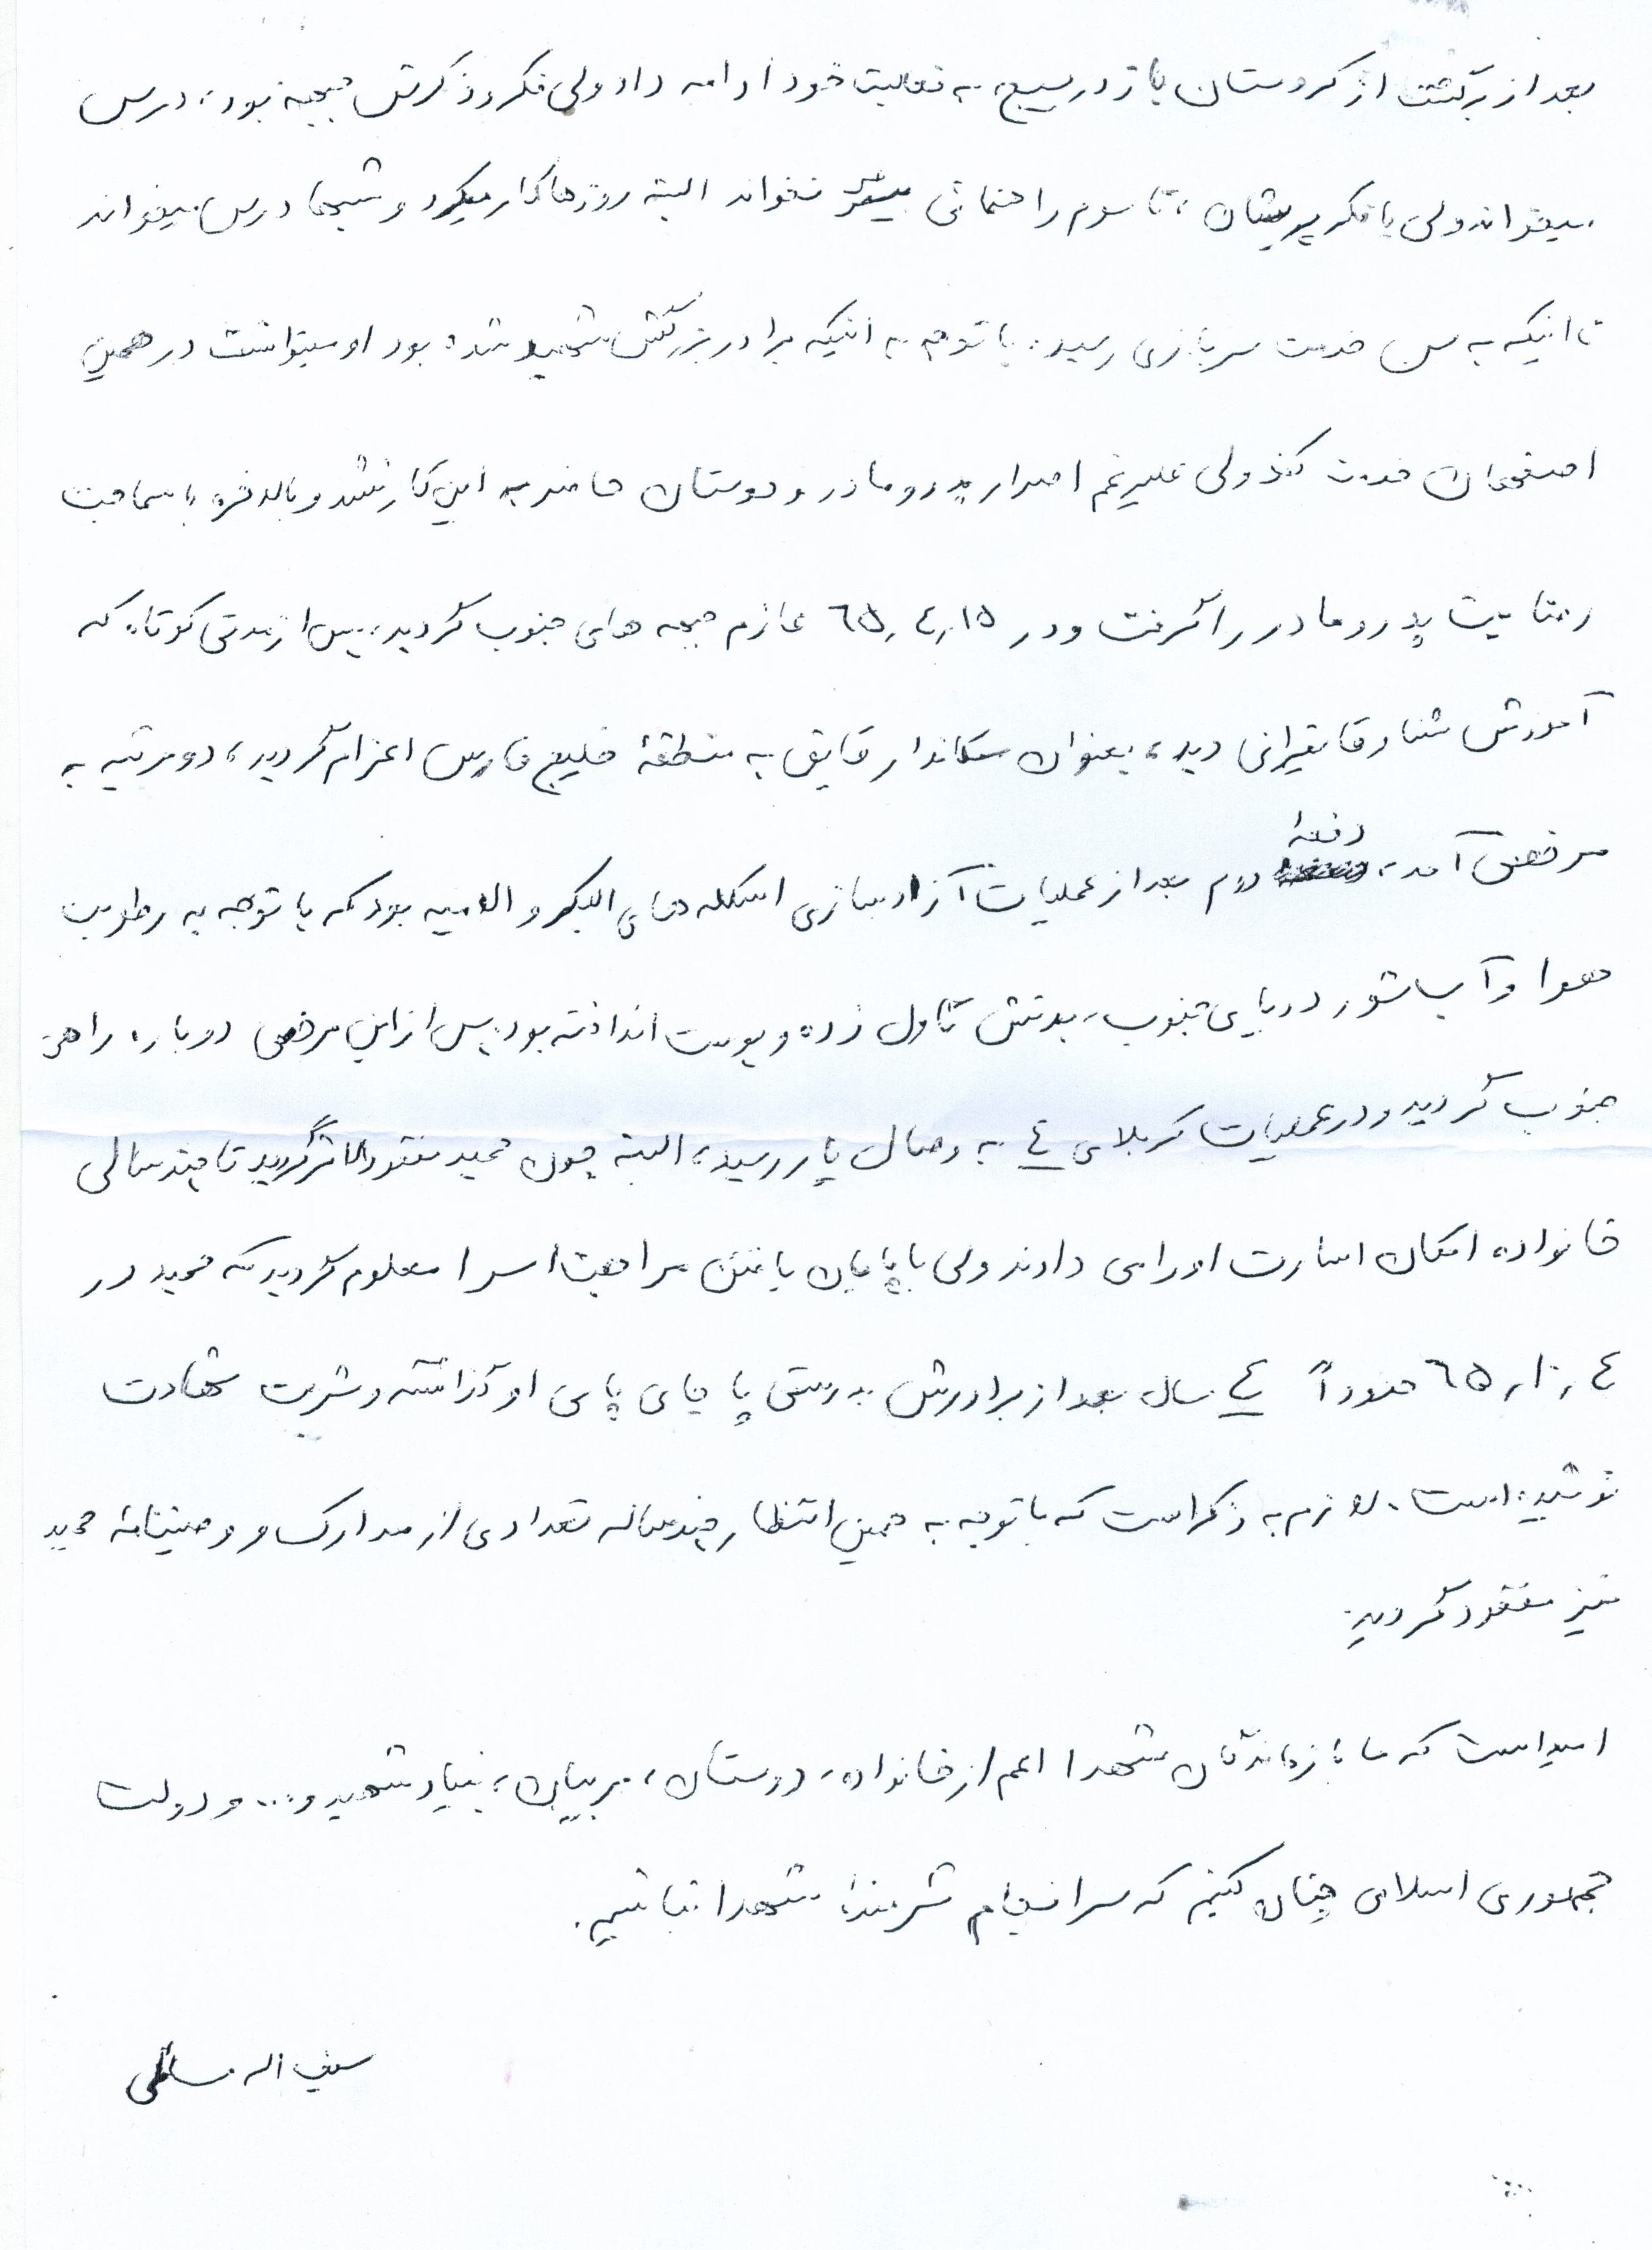 بعد از برگشت از کردستان باز در بسیج، به فعالیت خود ادامه داد ولی فکر و ذکرش جبهه بود، درس
میخواند ولی با فکر پریشان، تا سوم راهنمائی بیشتر نخواند البته روزها کار میکرد و شبها درس میخواند
تا اینکه به سن خدمت سربازی رسید، با توجه به اینکه برادر بزرگش شهید شده بود او میتوانست در همین
اصفهان خدمت کند ولی علیرغم اصرار پدر و مادر و دوستان حاضر به این کار نشد و بالاخره با سماجت
رضایت پدر و مادر را گرفت و در ۶۵٫۴٫۱۵ عازم جبهه های جنوب گردید، پس از مدتی کوتاه که
آموزش شنا و قایقرانی دید، بعنوان سکاندار قایق به منطقهٔ خلیج فارس اعزام گردید، دو مرتبه به
مرخصی آمد، دفعهٔ دوم بعد از عملیات آزادسازی اسکله های البکر و الامیه بود که با توجه به رطوبت
هوا و آب شور دریای جنوب، بدنش تاول زده و پوست انداخته بود پس از این مرخصی دوباره راهی
جنوب گردید و در عملیات کربلای ۴ به وصال یار رسید، البته چون حمید مفقودالاثر گردید تا چند سالی
خانواده امکان اسارت او را می دادند ولی با پایان یافتن مراجعت اسرا معلوم گردید که حمید در
۶۵٫۱۰٫۴ حدوداً ۴ سال بعد از برادرش به درستی پا جای پای او گذاشته و شربت شهادت
نوشیده است. لازم به ذکر است که با توجه به همین انتظار چند ساله تعدادی از مدارک و وصیتنامهٔ حمید
نیز مفقود گردید.
امید است که ما بازماندگان شهدا اعم از خانواده، دوستان، مربیان، بنیاد شهید و... و دولت
جمهوری اسلامی چنان کنیم که سرانجام شرمندهٔ شهدا نباشیم.
سیف اله مسائلی